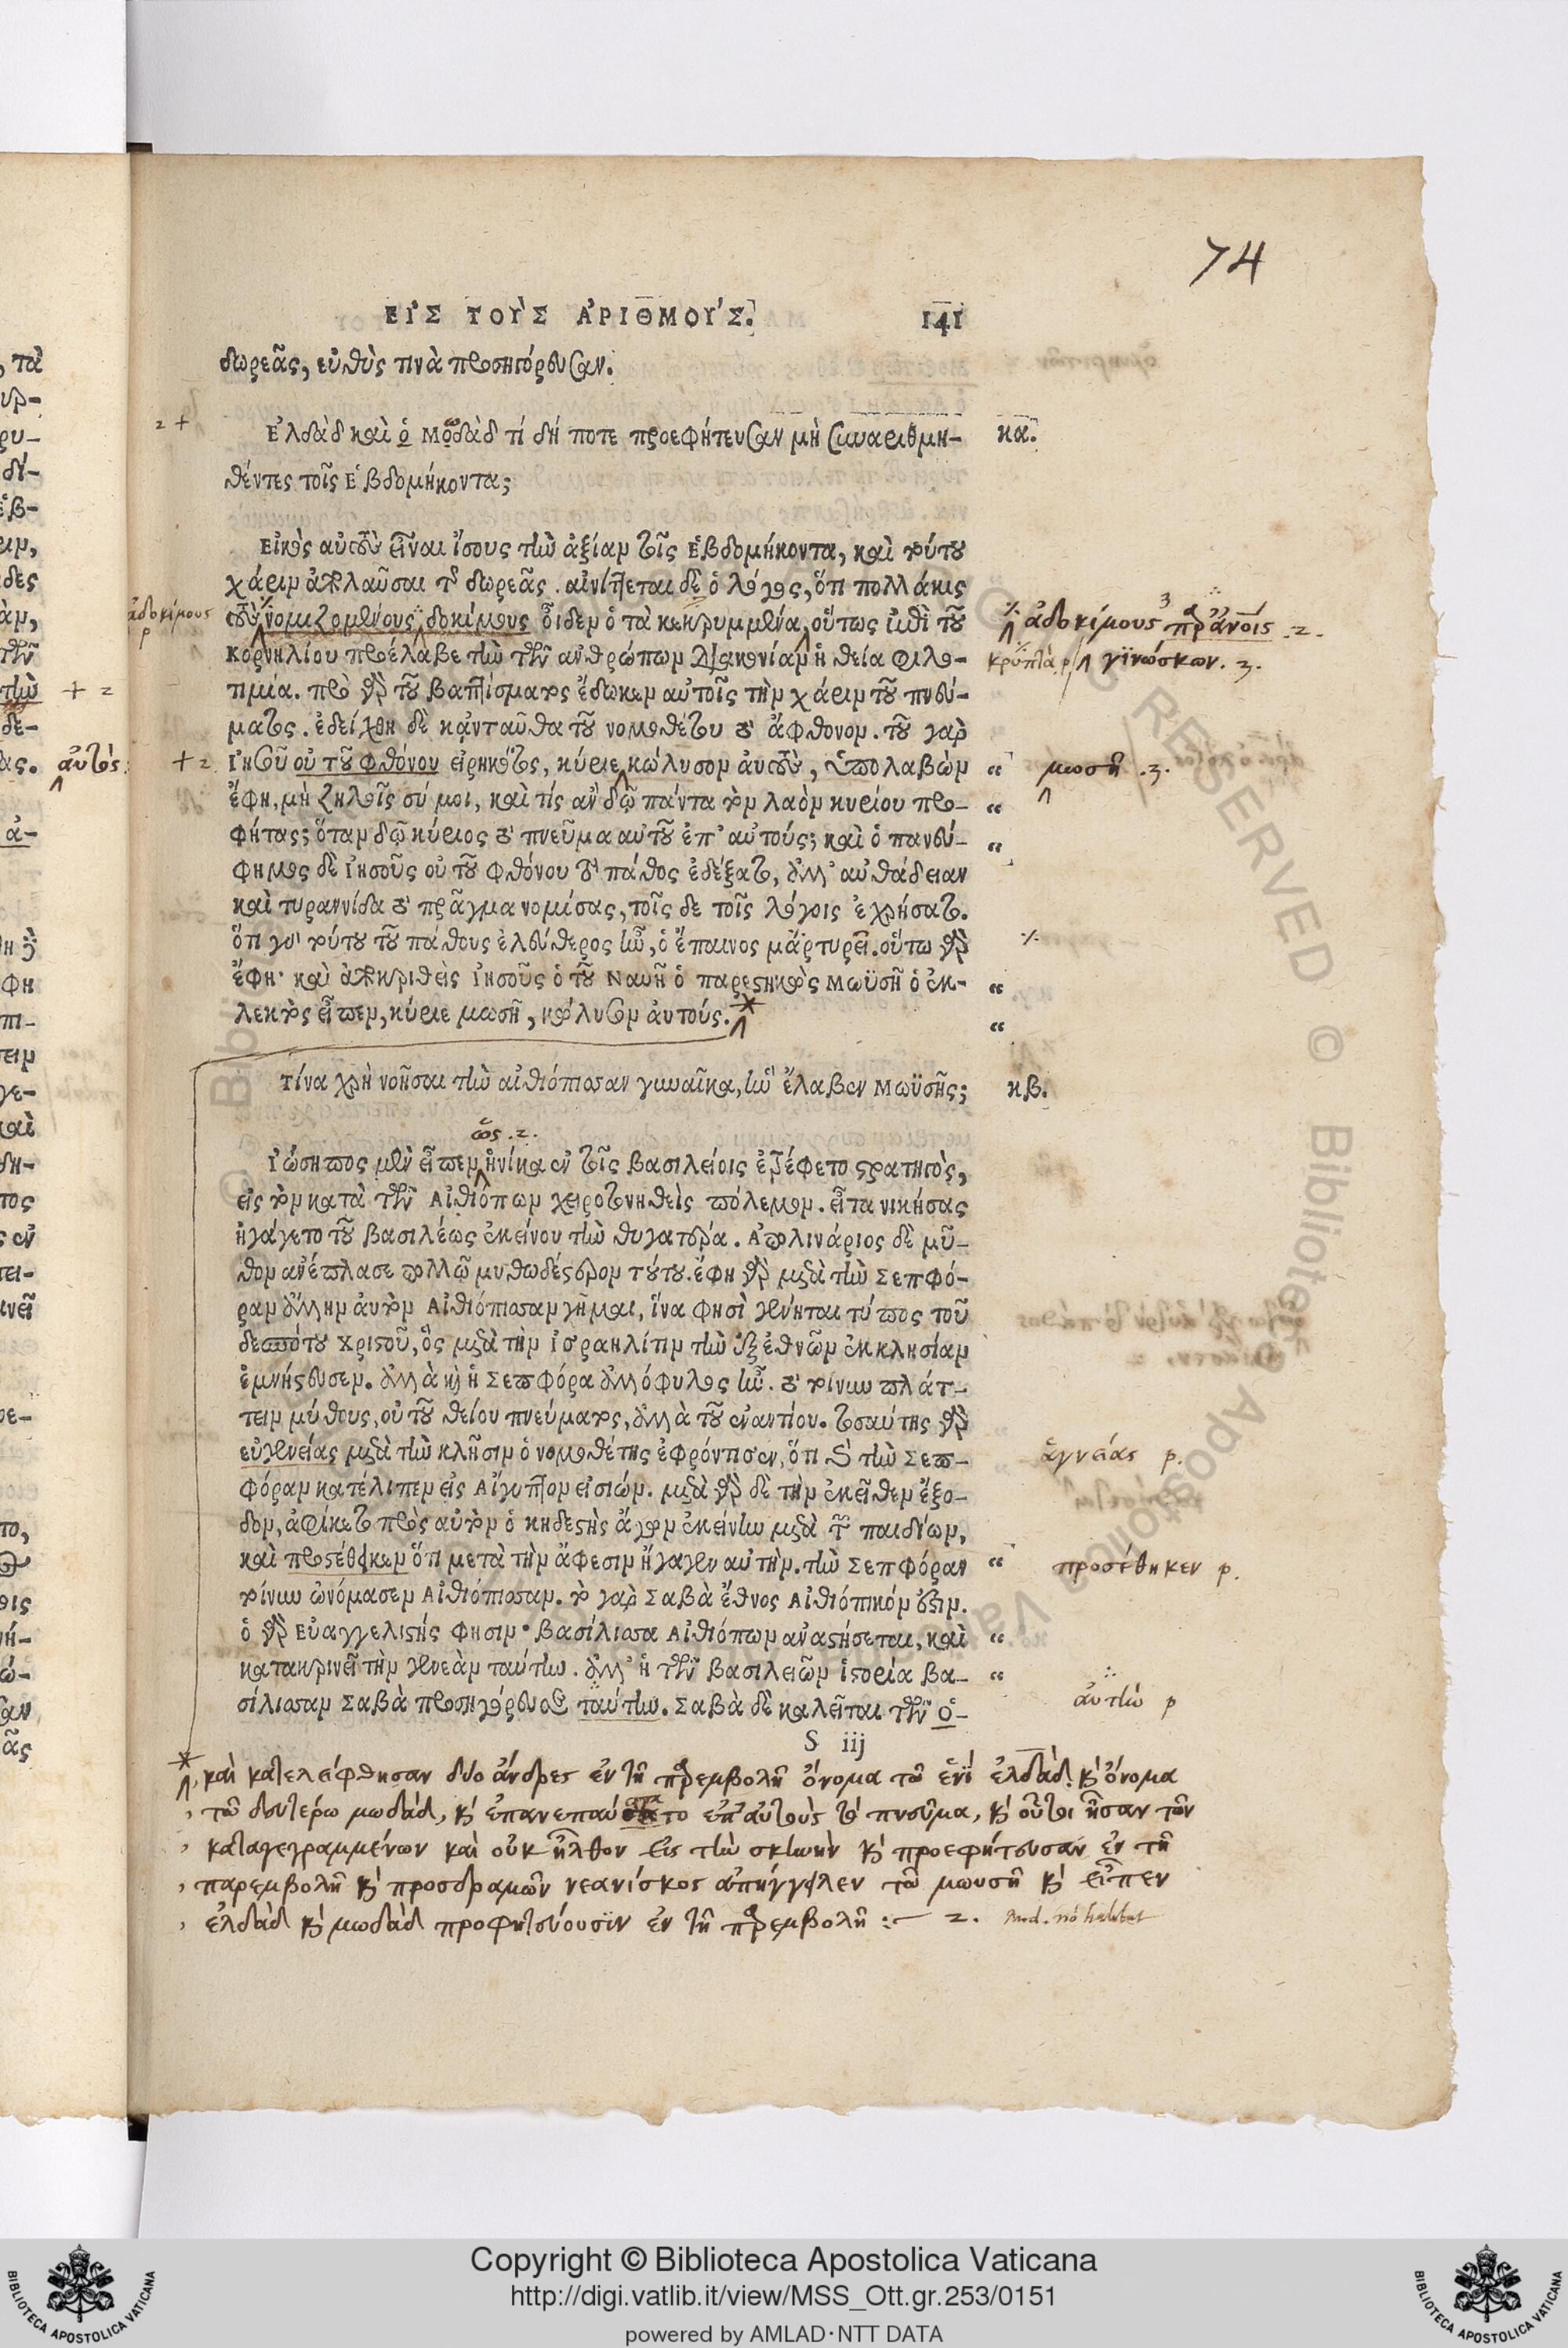 74
ΕΙ᾿Σ ΤΟΥ`Σ ἈΡΙΘΜΟΥ´Σ. 141
δωρεᾶς, εὐθὺς τινὰ προσηγόρευσαν.
Ἐλδὰδ καὶ ὁ Μοδὰδ τί δή ποτε προεφήτευσαν μὴ συναριθμη– κα.
θέντες τοῖς Ἑβδομήκοντα;
Εἰκὸς αὐτοὺς εἶναι ἴσους τὴν ἀξίαν τοῖς Ἑβδομήκοντα, καὶ τούτου
χάριν ἀπολαῦσαι τῆς δωρεᾶς. αἰνίττεται δὲ ὁ λόγος, ὅτι πολλάκις
ἀδοκίμους p
τοὺς νομιζομένους δοκίμους οἶδεν ὁ τὰ κεκρυμμένα, οὕτως ἐπὶ τοῦ
ἀδοκίμους παρ' ἀν̅οις .2.
Κορνηλίου προέλαβε τὴν τῶν ἀνθρώπων διακονίαν ἡ θεία φιλο–
κρυπτὰ p γϊνώσκων. 3.
τιμία. πρὸ γὰρ τοῦ βαπτίσματος ἔδωκεν αὐτοῖς τὴν χάριν τοῦ πνεύ–
ματος. ἐδείχθη δὲ κἀνταῦθα τοῦ νομοθέτου τὸ ἄφθονον. τοῦ γὰρ
+ 2 Ἰησοῦ οὐ τοῦ φθόνου εἰρηκότος, κύριε κώλυσον αὐτοὺς, ὑπολαβὼν “ μωσῆ .3.
ἔφη, μὴ ζηλοῖς σύ μοι, καὶ τίς ἂν δῷ πάντα τὸν λαὸν κυρίου προ– “
φήτας; ὅταν δῷ κύριος τὸ πνεῦμα αὐτοῦ ἐπ’ αὐτούς; καὶ ὁ πανεύ– “
φημος δὲ Ἰησοῦς οὐ τοῦ φθόνου τὸ πάθος ἐδέξατο, ἀλλ’ αὐθάδειαν
καὶ τυραννίδα τὸ πρᾶγμα νομίσας, τοῖς δε τοῖς λόγοις ἐχρήσατο.
ὅτι γὰρ τούτου τοῦ πάθους ἐλεύθερος ἦν, ὁ ἔπαινος μαρτυρεῖ. οὕτω γὰρ
ἔφη· καὶ ἀποκριθεὶς Ἰησοῦς ὁ τοῦ Ναυῆ ὁ παρεστηκὸς Μωϋσῆ ὁ ἐκ– “
λεκτὸς εἶπεν, κύριε μωσῆ, κώλυσον αὐτούς. “
Τίνα χρὴ νοῆσαι τὴν αἰθιόπισσαν γυναῖκα, ἣν ἔλαβεν Μωϋσῆς; κβ.
ὡς .2.
Ἰώσηπος μὲν εἶπεν ἡνίκα ἐν τοῖς βασιλείοις ἐτρέφετο στρατηγὸς,
εἰς τὸν κατὰ τῶν Αἰθιόπων χειροτονηθεὶς πόλεμον. εἶτα νικήσας
ἠγάγετο τοῦ βασιλέως ἐκείνου τὴν θυγατέρα. Ἀπολινάριος δὲ μῦ–
θον ἀνέπλασε πολλῷ μυθωδέστερον τούτου. ἔφη γὰρ μετὰ τὴν Σεπφό–
ραν ἄλλην αὐτὸν Αἰθιόπισσαν γῆμαι, ἵνα φησὶ γένηται τύπος τοῦ
δεσπότου Χριστοῦ, ὃς μετὰ τὴν ἰσραηλίτιν τὴν ἐξ ἐθνῶν ἐκκλησίαν
ἐμνήστευσεν. ἀλλὰ καὶ ἡ Σεπφόρα ἀλλόφυλος ἦν. τὸ τοίνυν πλάτ–
τειν μύθους, οὐ τοῦ θείου πνεύματος, ἀλλὰ τοῦ ἐναντίου. τοσαύτης γὰρ
εὐγενείας μετὰ τὴν κλῆσιν ὁ νομοθέτης ἐφρόντισεν, ὅτι καὶ τὴν Σεπ– ἁγνείας p.
φόραν κατέλιπεν εἰς Αἴγυπτον εἰσιών. μετὰ γὰρ δὲ τὴν ἐκεῖθεν ἔξο–
δον, ἀφίκετο πρὸς αὐτὸν ὁ κηδεστὴς ἄγων ἐκείνην μετὰ τῶν παιδίων,
καὶ προστέθηκεν ὅτι μετὰ τὴν ἄφεσιν ἤγαγεν αὐτὴν. τὴν Σεπφόραν “ προσέθηκεν p.
τοίνυν ὠνόμασεν Αἰθιόπισσαν. τὸ γὰρ Σαβὰ ἔθνος Αἰθιόπικόν ἐστιν.
ὁ γὰρ Εὐαγγελιστής φησιν· βασίλισσα Αἰθιόπων ἀναστήσεται, καὶ “
κατακρινεῖ τὴν γενεὰν ταύτην. ἀλλ’ ἡ τῶν βασιλειῶν ἱστορία βα– “
σίλισσαν Σαβὰ προσηγόρευσε ταύτην. Σαβὰ δὲ καλεῖται τῶν ὁ– αὐτὴν p
S iij
καὶ κατελείφθησαν δύο ἄνδρες ἐν τῆ παρεμβολῆ ὄνομα τῶ ἑνῒ ἐλδὰδ. κ̀ ὄνομα
τῶ δευτέρω μωδὰδ, κ̀ ἐπανεπαύσατο ἐπ' αὐτοὺς τὸ πνεῦμα, κ̀ οὗτοι ἦσαν τῶν
καταγεγραμμένων καὶ οὐκ ἦλθον εἰς τὴν σκηνὴν κ̀ προεφήτευσαν ἐν τῆ
παρεμβολῆ κ̀ προσδραμὼν νεανίσκος ἀπήγγειλεν τῶ μωυσῆ κ̀ εἶπεν
ἐλδὰδ κ̀ μωδὰδ προφητεύουσϊν ἐν τῆ παρεμβολῆ :– 2.
Copyright © Biblioteca Apostolica Vaticana
http://digi.vatlib.it/view/MSS_Ott.gr.253/0151
powered by AMLAD·NTT DATA